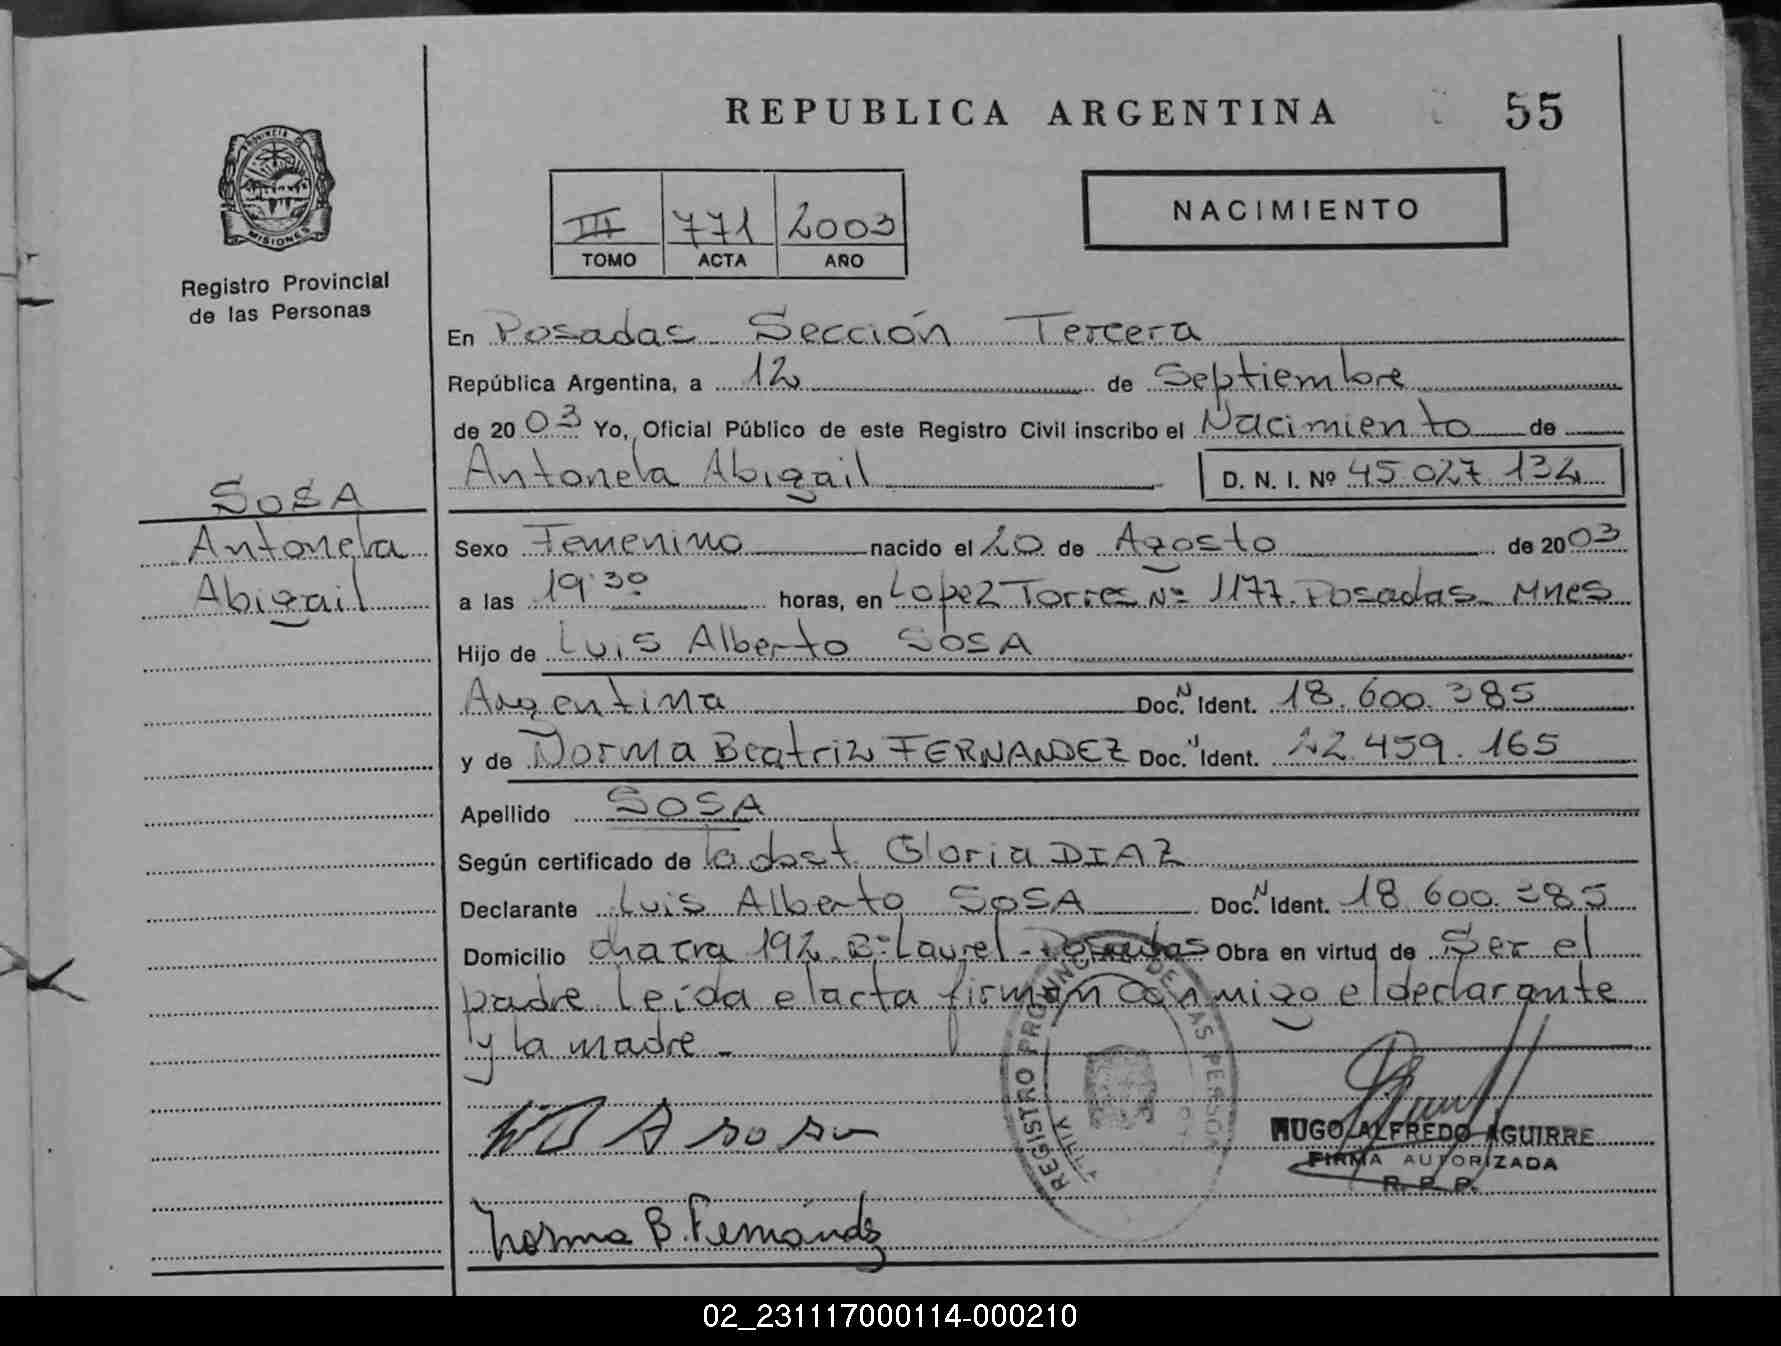 REPUBLICA ARGENTINA
55
PROVINCIA DE
MISIONES
Registro Provincial
de las Personas
III 771 2003
TOMO ACTA AÑO
NACIMIENTO
En Posadas Sección Tercera
República Argentina, a 12 de Septiembre
de 2003 Yo, Oficial Público de este Registro Civil inscribo el Nacimiento de
Antonela Abigail D. N. I. Nº 45.027.134
SOSA
Antonela
Abigail
Sexo Femenino nacido el 20 de Agosto de 2003
a las 19:30 horas, en Lopez Torres Nº 1177. Posadas. Mnes
Hijo de Luis Alberto SOSA
Argentina Doc. N Ident. 18.600.385
y de Norma Beatriz FERNANDEZ Doc. N Ident. 22.459.165
Apellido SOSA
Según certificado de la obst. Gloria DIAZ
Declarante Luis Alberto SOSA Doc. N Ident. 18.600.385
Domicilio chacra 192 Bº Laurel - Posadas Obra en virtud de Ser el
padre Leída el acta firman conmigo el declarante
y la madre -
REGISTRO PROVINCIAL DE LAS PERSONAS
A Sosa
HUGO ALFREDO AGUIRRE
FIRMA AUTORIZADA
R. P. P.
Norma B. Fernández
02_231117000114-000210